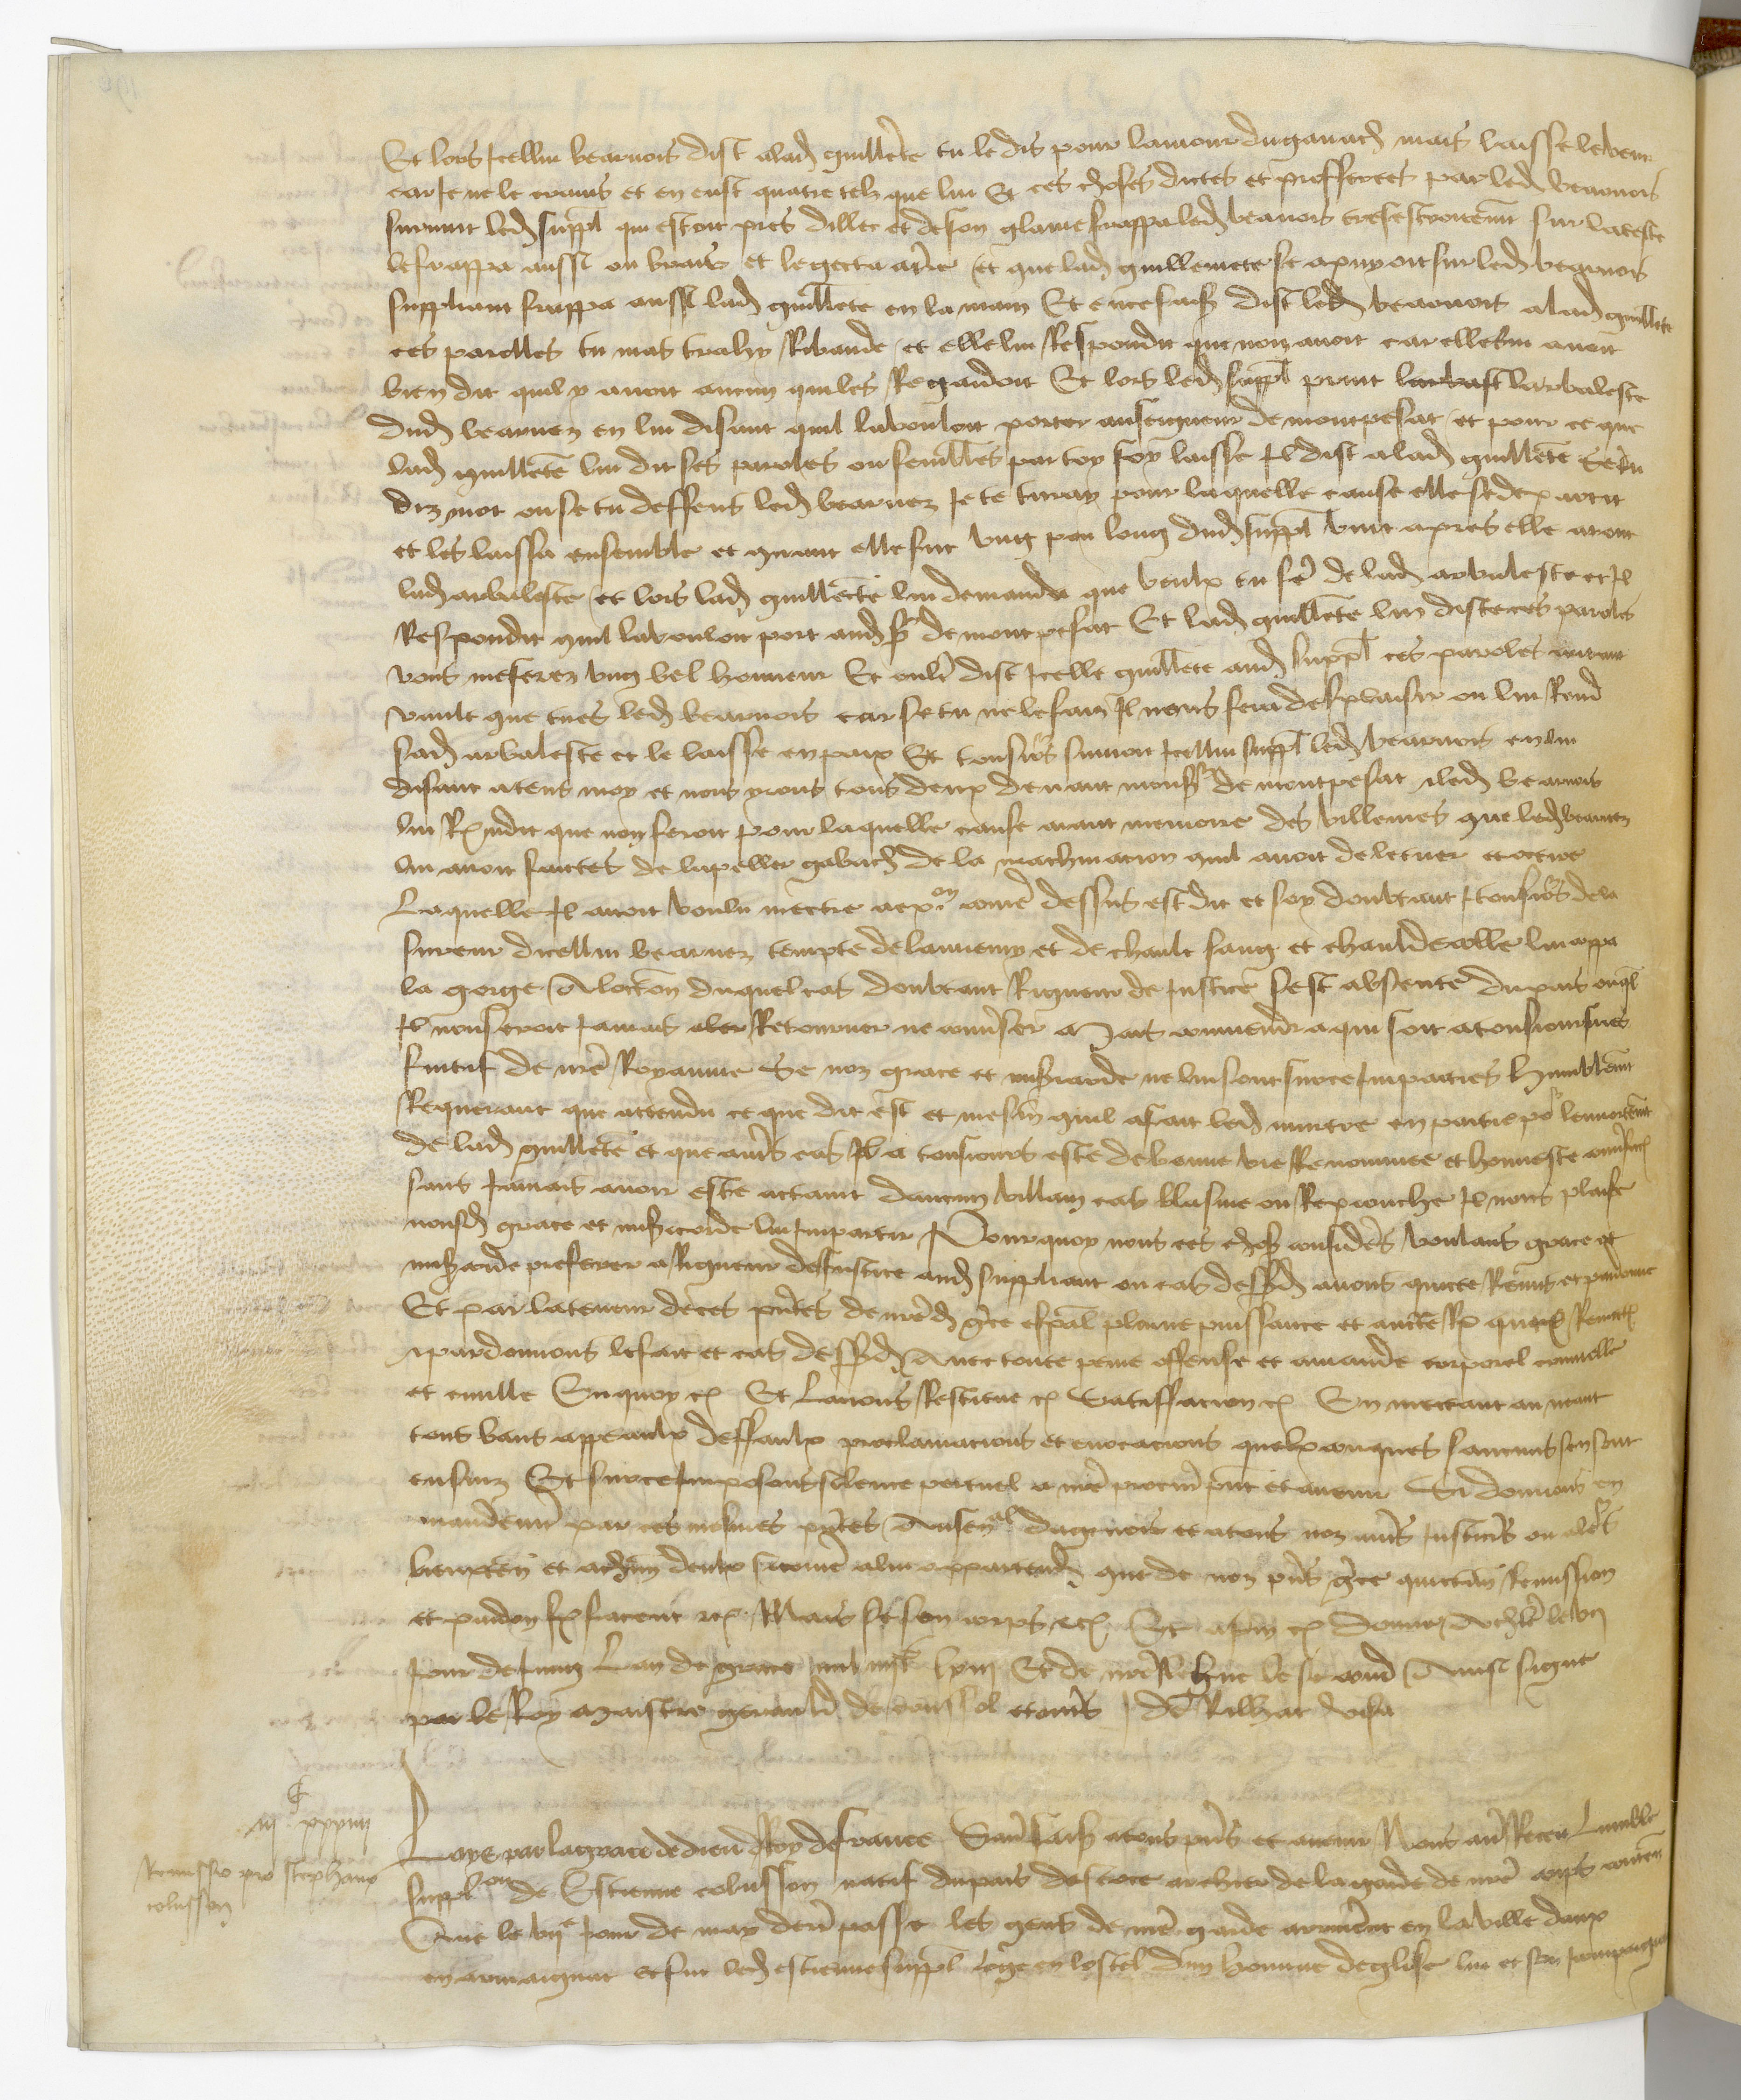 Et lors icellui bearnois dist a lad guillete tu le dis pour lamour du gavach mais laisse le venir
car je ne le crains et en eust quatre telz que lui Et ces choses dictes et profferees par led bearnois
survint led suppl qui estoit pres dillec et de son glaive frappa led bearnois tresestroitemt sur la teste
le frappa aussi ou bras et le gecta a tre et que lad guillemete se apuyoit sur led bearnois
suppliant frappa aussi lad guillete en la main Et en ce faisant dist led bearnois a lad guillete
ces parolles tu mas trahy Ribaude et elle lui Respondit que non avoit car elle lui avoit
bien dit quil y avoit aucun qui les Regardoit Et lors led suppl print larbaleste
dud bearnez en lui disant quil la vouloit porter au seigneur de montpesat et pour ce que
lad guillete lui dit ses paroles ou semblables par toy foy laisse Il dist a lad guillete se tu
diz mot ou se tu deffens led bearnez Je te turay pour laquelle cause elle se departit
et les laissa ensemble et quant elle fut ung peu loing dud suppl vint apres elle atout
lad arbaleste et lors lad guillecte lui demanda que veulx tu fe de lad arbaleste et Il
Respondit quil la vouloit port aud sr de montpesat Et lad guillete lui dist ces paroles
vous me ferez ung bel honneur Et oult dist icelle guillete aud suppl ces paroles autant
vault que tues led bearnois car se tu ne le faiz Il nous fera desplaisir ou lui Rend
sad arbaleste et le laisse en paix Et tousjrs suivoit icellui suppl led bearnois en lui
disant atens moy et nous yrons tous deux devant monsr de montpesat led bearnois
lui Respondit que non feroit pour laquelle cause aiant memoire des villenies que led bearnez
lui avoit faictes de lapeller gabach de la machinacion quil avoit de le tuer et occire
Laquelle Il avoit voulu mectre a exon come dessus est dit et soy doubtant tousjrs de la
fureur dicellui bearnez tempte de lannemy et de chault sang et chaulde colle lui coppa
la gorge A loccon duquel cas doubtant Rigueur de Justice sest absente du pais ouql
Il noseroit Jamais aler Retourner ne converser Mais conviendra quil soit a tousjours mes
fuitif de nre Royaume Se noz grace et misericorde ne lui sont sur ce Imparties humblemt
Requerant que attendu ce que dit est et mesmt quil a fait led murtre en partie por lenortemt
de lad guillete et que en autrs cas Il a tousjours este de bonne vie Renommee et honneste conversacion
sans Jamais avoir este actaint daucun villain cas blasme ou Reprouche Il nous plaise
nousd grace et misericorde lui Impartir Pourquoy nous ces choses consideres voulans grace et
misericorde preferer a Rigueur de Justice aud suppliant ou cas dessusd avons quicte Remis et pardonne
Et par la teneur de ces prtes de nred gce espal plaine puissance et aucte Ral quictons Remectons
et pardonnons le fait et cas dessusd Avec toute peine offense et amande corporel criminelle
et civille En quoy etc Et Lavons Restitue etc Satisfacion etc En mectant au neant
tous bans appeaulx deffaulx proclamacions et evocacions quelxconques saucuns sen sont
ensuiz Et sur ce Imposons silence perpetuel a nre procur pnt et avenir Si donnons en
mandemt par ces mesmes prtes Au senal dagenois et a tous noz autrs Justiciers ou a lers
lieuxten et a chun deulx si come a lui appartiendra que de noz pns gce quictance Remission
et pardon Ilz facent etc Mais se son corps etc Et afin etc Donne a Chre le vij
Jour de Juing Lan de grace mil iiijc lxiij Et de nre Regne le second Ainsi signe
par le Roy Maistre gerauld de et autrs De Rilhac visa
iijc xxxiiij
Remissio pro stephano
colusson
Loys par la grace de dieu Roy de france Savr faisons a tous pns et avenir Nous avr Receu Lumble
supplon de Estienne colusson natif du pais descoce archier de la garde de nre corps conten
Que le vije Jour de may dern passe les gens de nre garde arriverent en la ville daux
en armaignac et fut led estienne suppl loge en lostel dun homme deglise lui et son compaignon